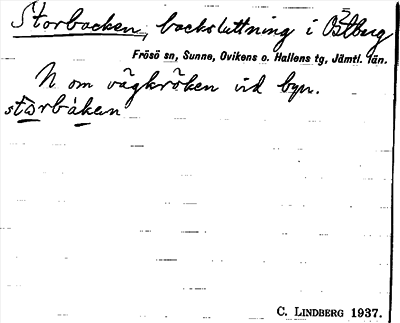 Storbacken, backsluttning i Östberg
Frösö sn, Sunne, Ovikens o. Hallens tg, Jämtl. län.
N om vägkröken vid byn.
stòrbàkan
C. LINDBERG 1937.